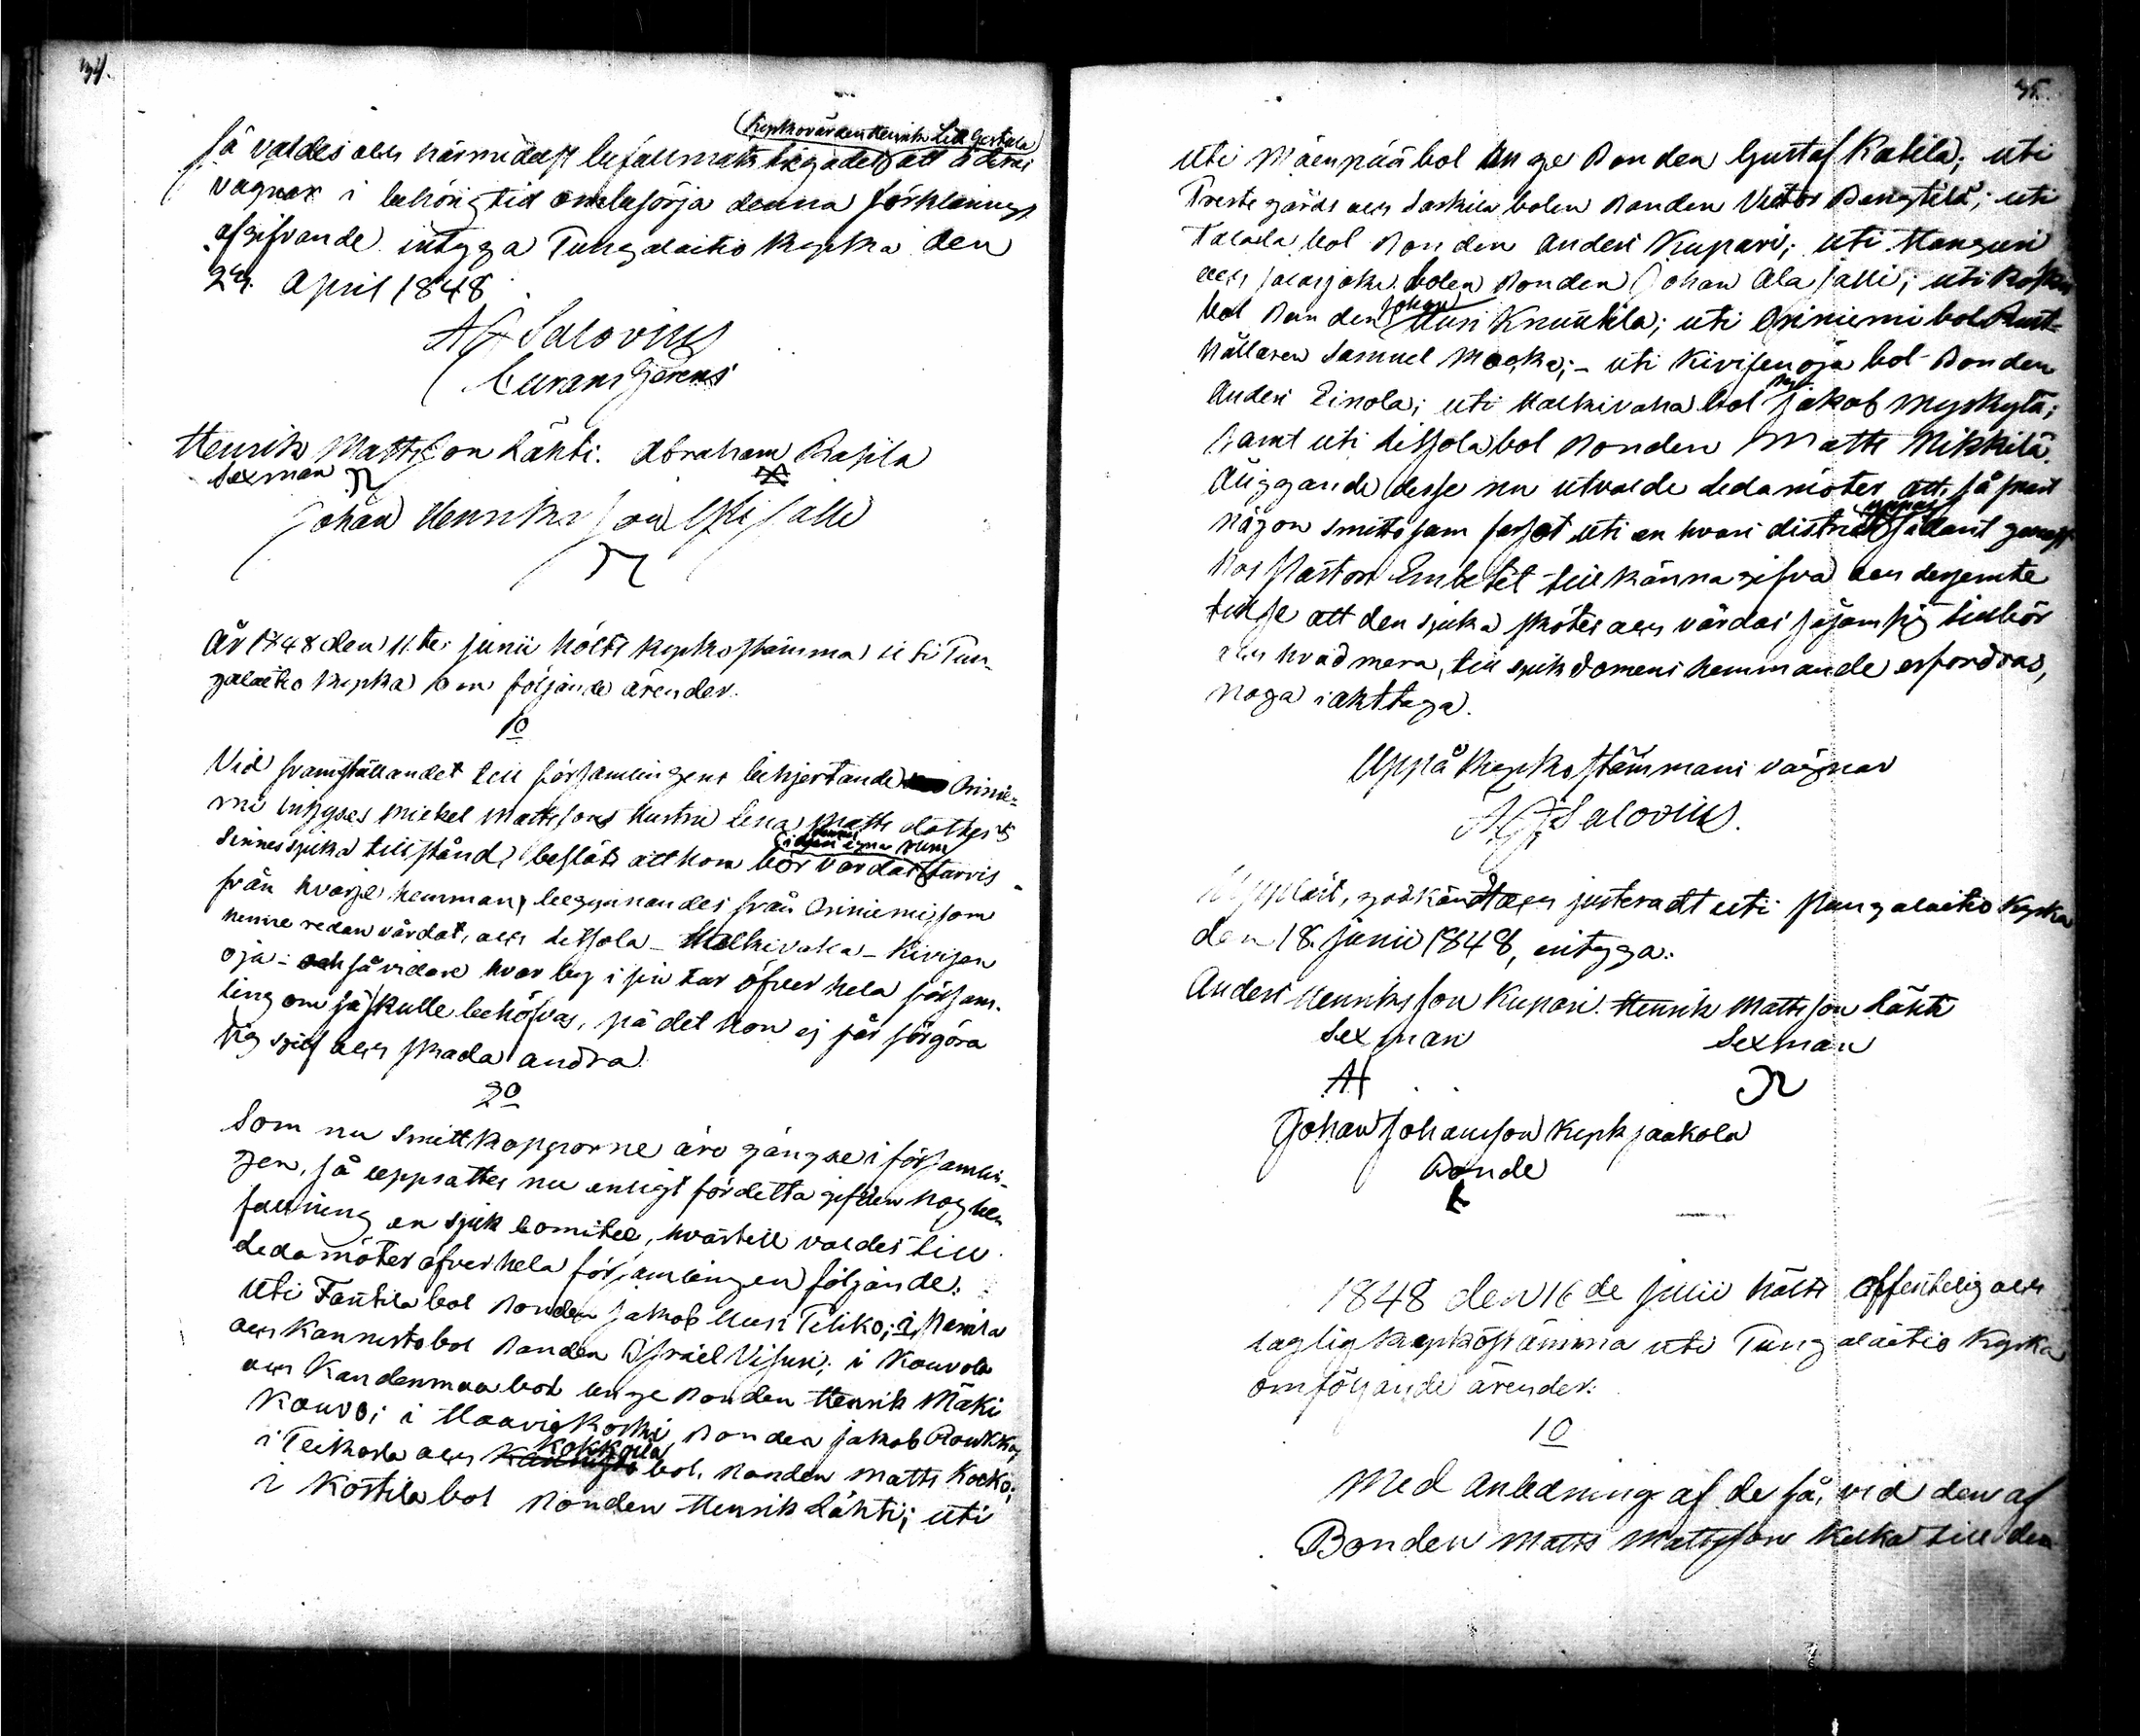 34.
(Kyrkovärden Henrik Lill Gertula)
så valdes och härmedelst befullmäktigades att å deras
vägnar i behörig tid ombesörja denna förklarings
afgifvande intyga Pungalaitio kyrka den
24. April 1848
A F Salovius
Curam gerens
Henrik Mattsson Lähti. Abraham Rasila
Sexman
Johan Henriksson Iso Salli
År 1848 den 11.te junii hölts kyrkostämma uti Pun-
galaitio kyrka om följande ärender.
1o
Vid framställandet till församlingens behjertande Orinie-
mi Inhyses Mickel Mattssons hustru Lena Matts dotters
i deras egna rum
Sinnessjuka tillstånd, beslöts att hon bör vårdas
från hvarje hemman, begynnandes från Oriniemi som
henne redan vårdat, och Littsola - Halkivaha - Kivisen
oja - och så vidare hvar by i sin tur öfver hela försam-
ling om så skulle behöfvas, på det hon ej får förgöra
sig sjelf och skada andra.
2o
Som nu Smittkopporne äro gängse i församlin-
gen, så uppsattes nu enligt för detta gifven hög be-
fallning en sjuk Comitee, hvartill valdes till
Ledamöter öfver hela församlingen följande:
Uti Fantila bol Bonden Jakob Uusi Tiliko; i
och Kannisto bol Bonden Israel Visuri; i Kouvola
och Kandenmaa bol unge Bonden Henrik Mäki
Kouvo; i Haaviskoski Bonden Jakob Roukka;
Kokkoila
i Teikola och Kannisto bol, Bonden Matts Kocko;
i Kostila bol Bonden Henrik Lähti; uti
35.
uti Mäenpää bol unge Bonden Gustaf Katila; uti
Prestegårds och Laskila bolen Bonden Victor Bengtilä; uti
Talala bol Bonden Anders Kupari; uti Hanguri
och Jalasjoki bolen Bonden Johan Ala Salli; uti Koski
Johan
bol Bonden Uusi Knuutila; uti Oriniemi bol Rust-
hållaren Samuel Mocka; - uti Kivisenoja bol Bonden
Anders Einola; uti Halkivaha bol Jakob Myskylä;
samt uti Littsola bol Bonden Matts Mikkilä.
Åliggande desse nu utvalde Ledamöter att, så snart
någon smittosam farsot uti en hvars district sådant genast
hos Pastors Embetet tillkänna gifva och dessemte
tillse att den sjuka skötes och vårdas såsom sig tillbör
och hvad mera, till sjukdomens hemmande erfordras,
noga iakttaga.
Uppå Kyrkostämmans vägnar
A F Salovius.
Uppläst, godkändt och justeradt uti Pungalaitio Kyrka
den 18. junii 1848, intyga:
Anders Henriksson Kupari. Henrik Mattsson Lähti
Sexman Sexman
Johan Johansson Kyrk jaakola
Bonde
1848 den 16de Julii hölts offentelig och
laglig kyrkostämma uti Pungalaitio Kyrka
om följande ärender:
1o
Med anledning af de få, vid den af
Bonden Matts Mattsson Kulka till den